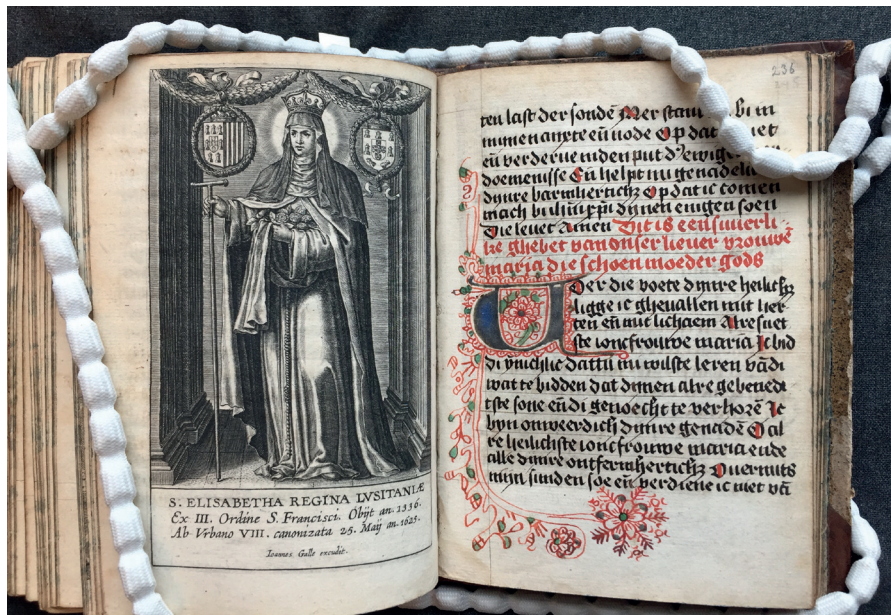 S. ELISABETHA REGINA LVSITANIÆ
Ex III. Ordine S. Francisci. Obijt an. 1336.
Ab Vrbano VIII. canonizata 25. Maij an. 1625.
Ioannes Galle excudit.
236
ten last der sonden Mer stant bi in
minen anxte eñ node Op dat niet
eñ verderue in den put d'ewiger
doemenisse Eñ helpt mi genadelic
dynre barmhertich Op dat ic comen
mach bi dynen enigen soen
Die leuet Amen Dit is een suuerli
ke ghebet van onser lieuer vrouwe
maria die schoen moeder gods
Uer die voete dynre heilich
ligge ic gheuallen mit her
ten eñ mit lichaem Alre suet
ste ioncfrouwe maria Ic bid
di ynichlic dattu mi wilste leren
wat te bidden dat dynen alre gebenedi
tste sone eñ di genoecht te verhorē Ic
byn onweerdich dynre genadē O al
re heilichste ioncfrouwe maria ende
alle dynre ontfermhertich Ouermits
myn sunden soe eñ verdiene ic niet vā